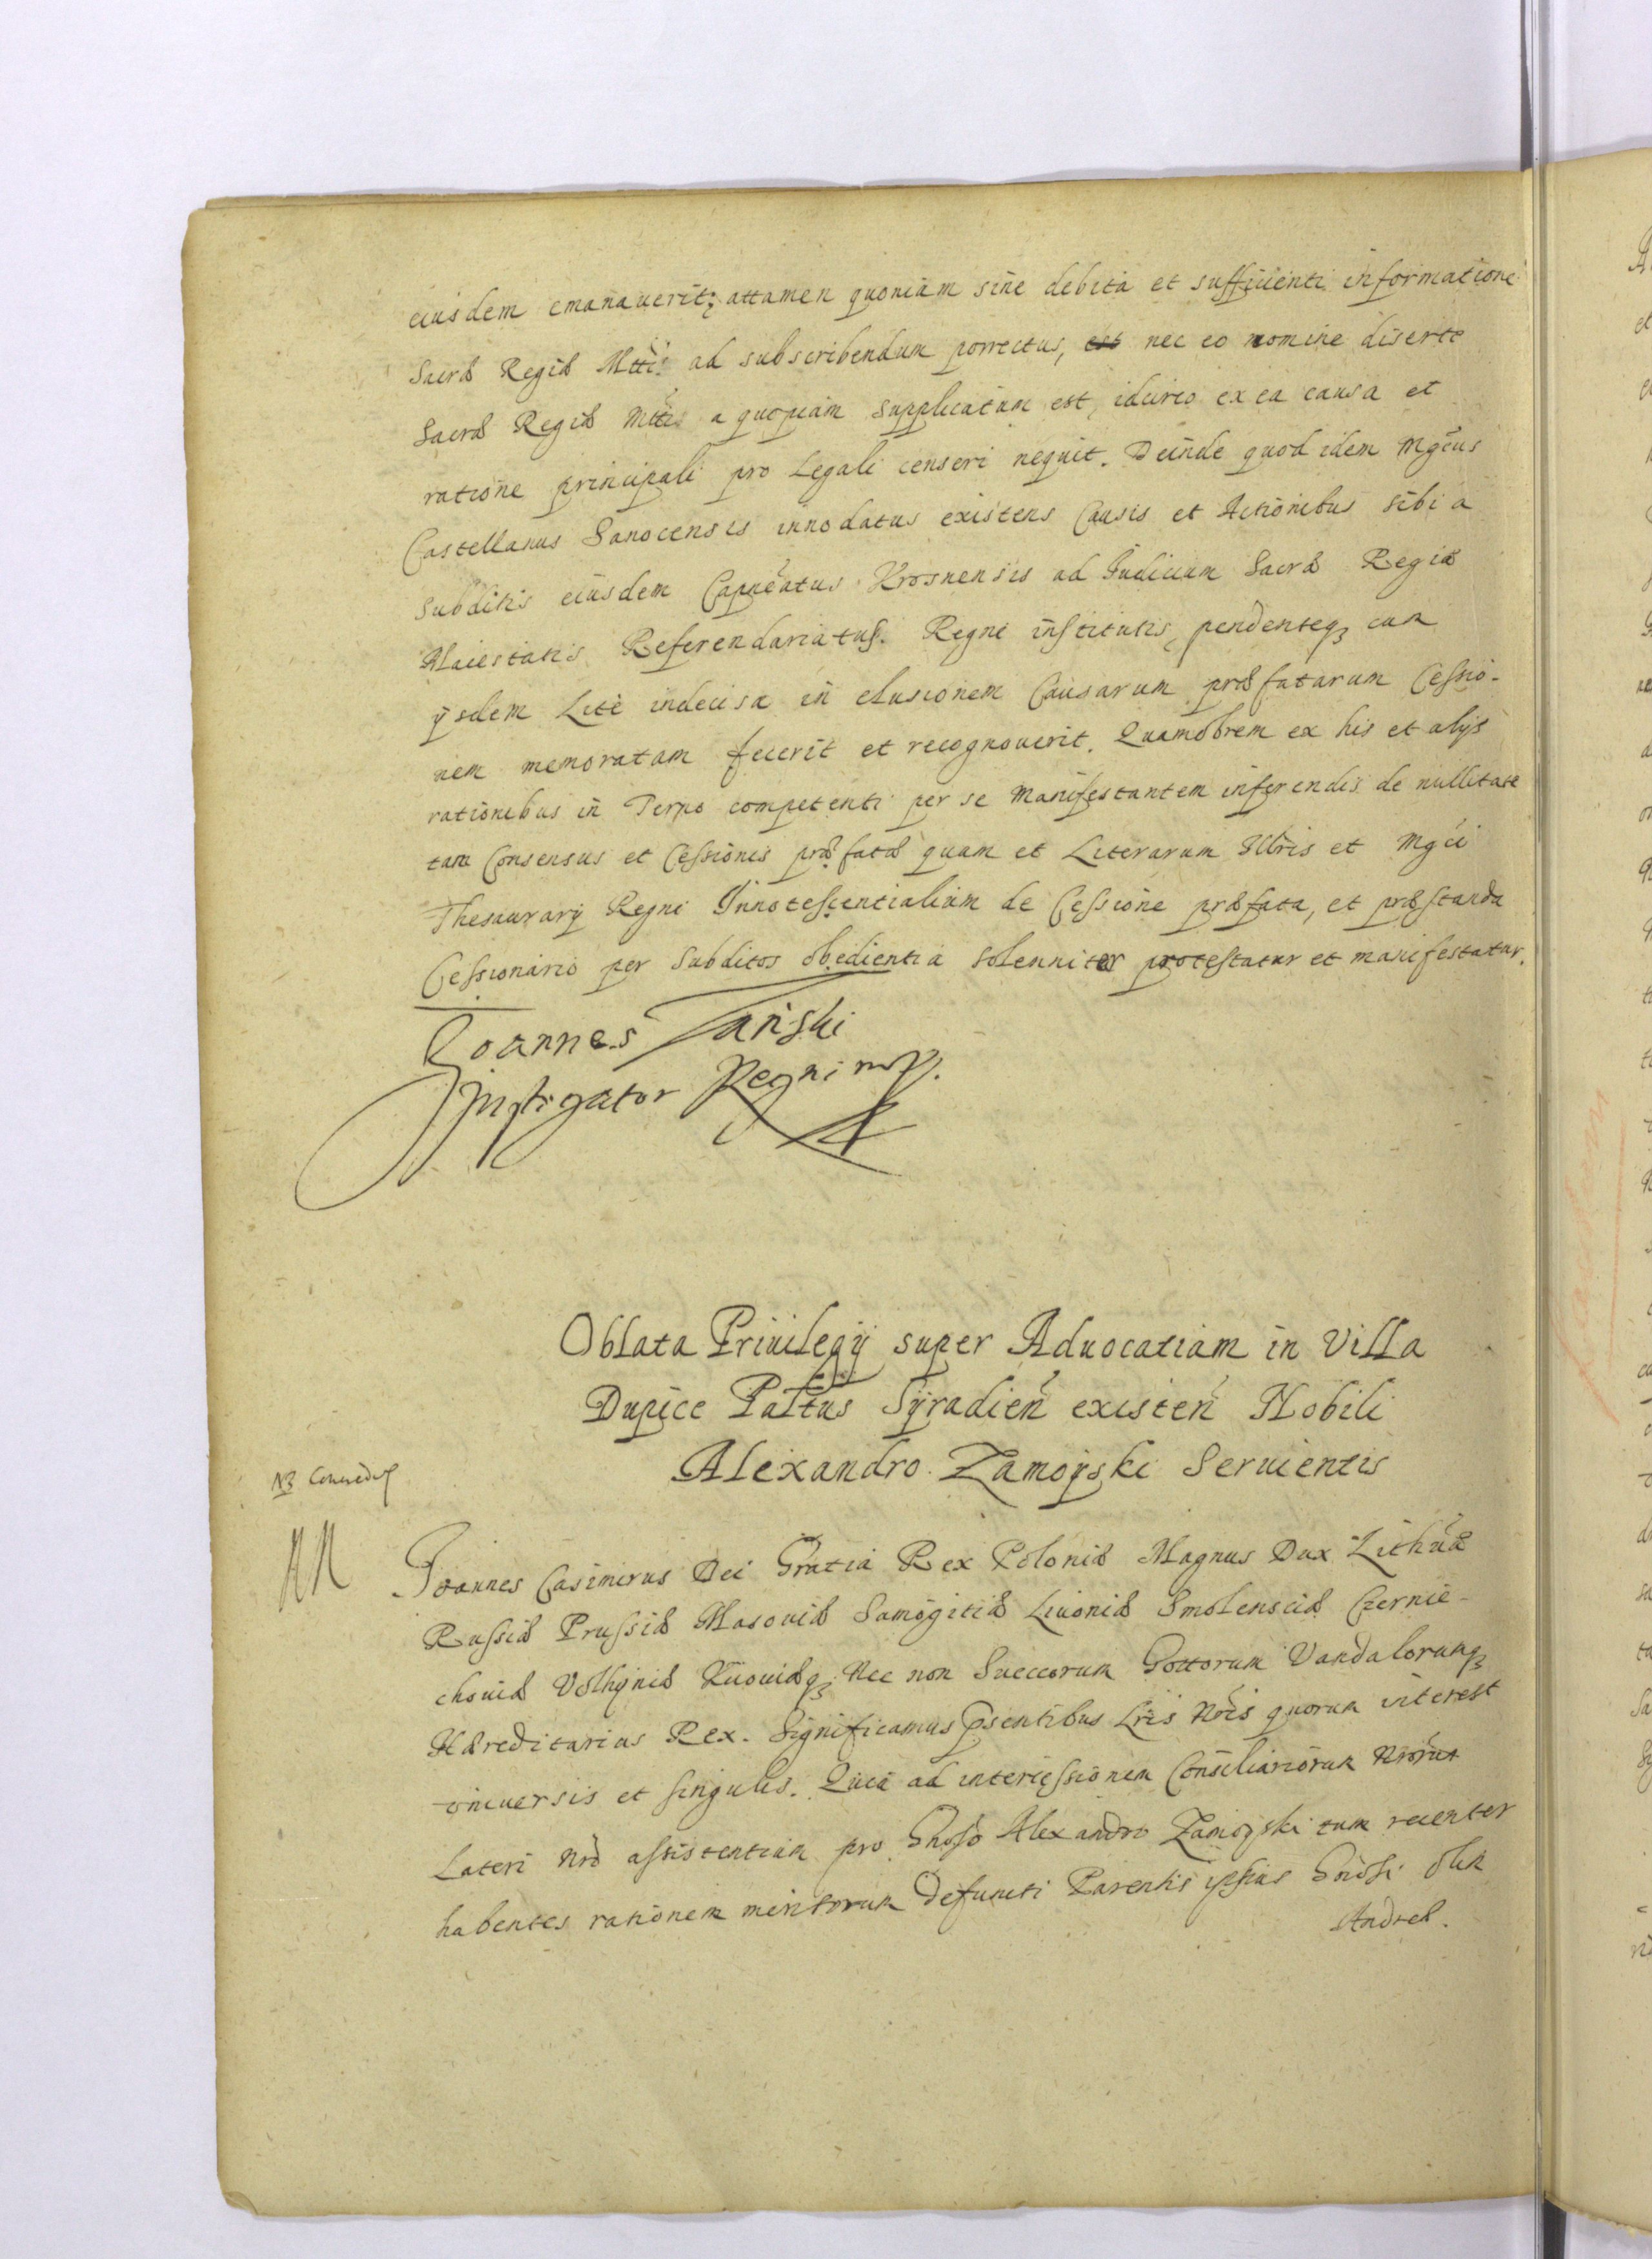 eiusdem emanauerit; attamen quoniam sine debita et sufficienti informatione
Sacræ Regiæ Mttis ad subscribendum porrectus, est nec eo nomine diserte
Sacræ Regiæ Mttis a quopiam supplicatum est, idcirco ex ea causa et
ratione principali pro Legali censeri nequit. Deinde quod idem Mgcus
Castellanus Sanocensis innodatus existens Causis et Actionibus sibi a
Subditis eiusdem Capneatus Krosnensis ad Iudicium Sacræ Regiæ
Maiestatis Referendariatus Regni institutis, pendenteq3 cum
ijsdem Lite indecisa in elusionem Causarum præfatarum Cessio-
nem memoratam fecerit et recognouerit. Quamobrem ex his et alijs
rationibus in Termo competenti per se Manifestantem inferendis de nullitate
tam Consensus et Cessionis præfatæ quam et Literarum Illris et Mgci
Thesaurarij Regni Innotescentialium de Cessione præfata, et præstanda
Cessionario per Subditos obedientia Solenniter protestatur et manifestatur.
Joannes Tański
Instigator Regni mp.
Oblata Priuilegij super Aduocatiam in Villa
Dupice Palttus Syradień existeń Nobili
Alexandro Zamoyski Seruientis
Joannes Casimirus Dei Gratia Rex Poloniæ Magnus Dux Lithuæ
Russiæ Prussiæ Masouiæ Samogitiæ Liuoniæ Smolensciæ Czernie-
chouiæ Volhyniæ Kijouiæq3 Nec non Sueccorum Gottorum Vandalorumq3
Hæreditarius Rex. Significamus psentibus Lris Nris quorum interest
vniuersis et singulis. Quia ad intercessionem Consiliariorum Nrorum
Lateri Nro assistentium pro Gnoso Alexandro Zamoyski tum recenter
habentes rationem meritorum Defuncti Parentis ipsius Gnosi olim
Andreæ.